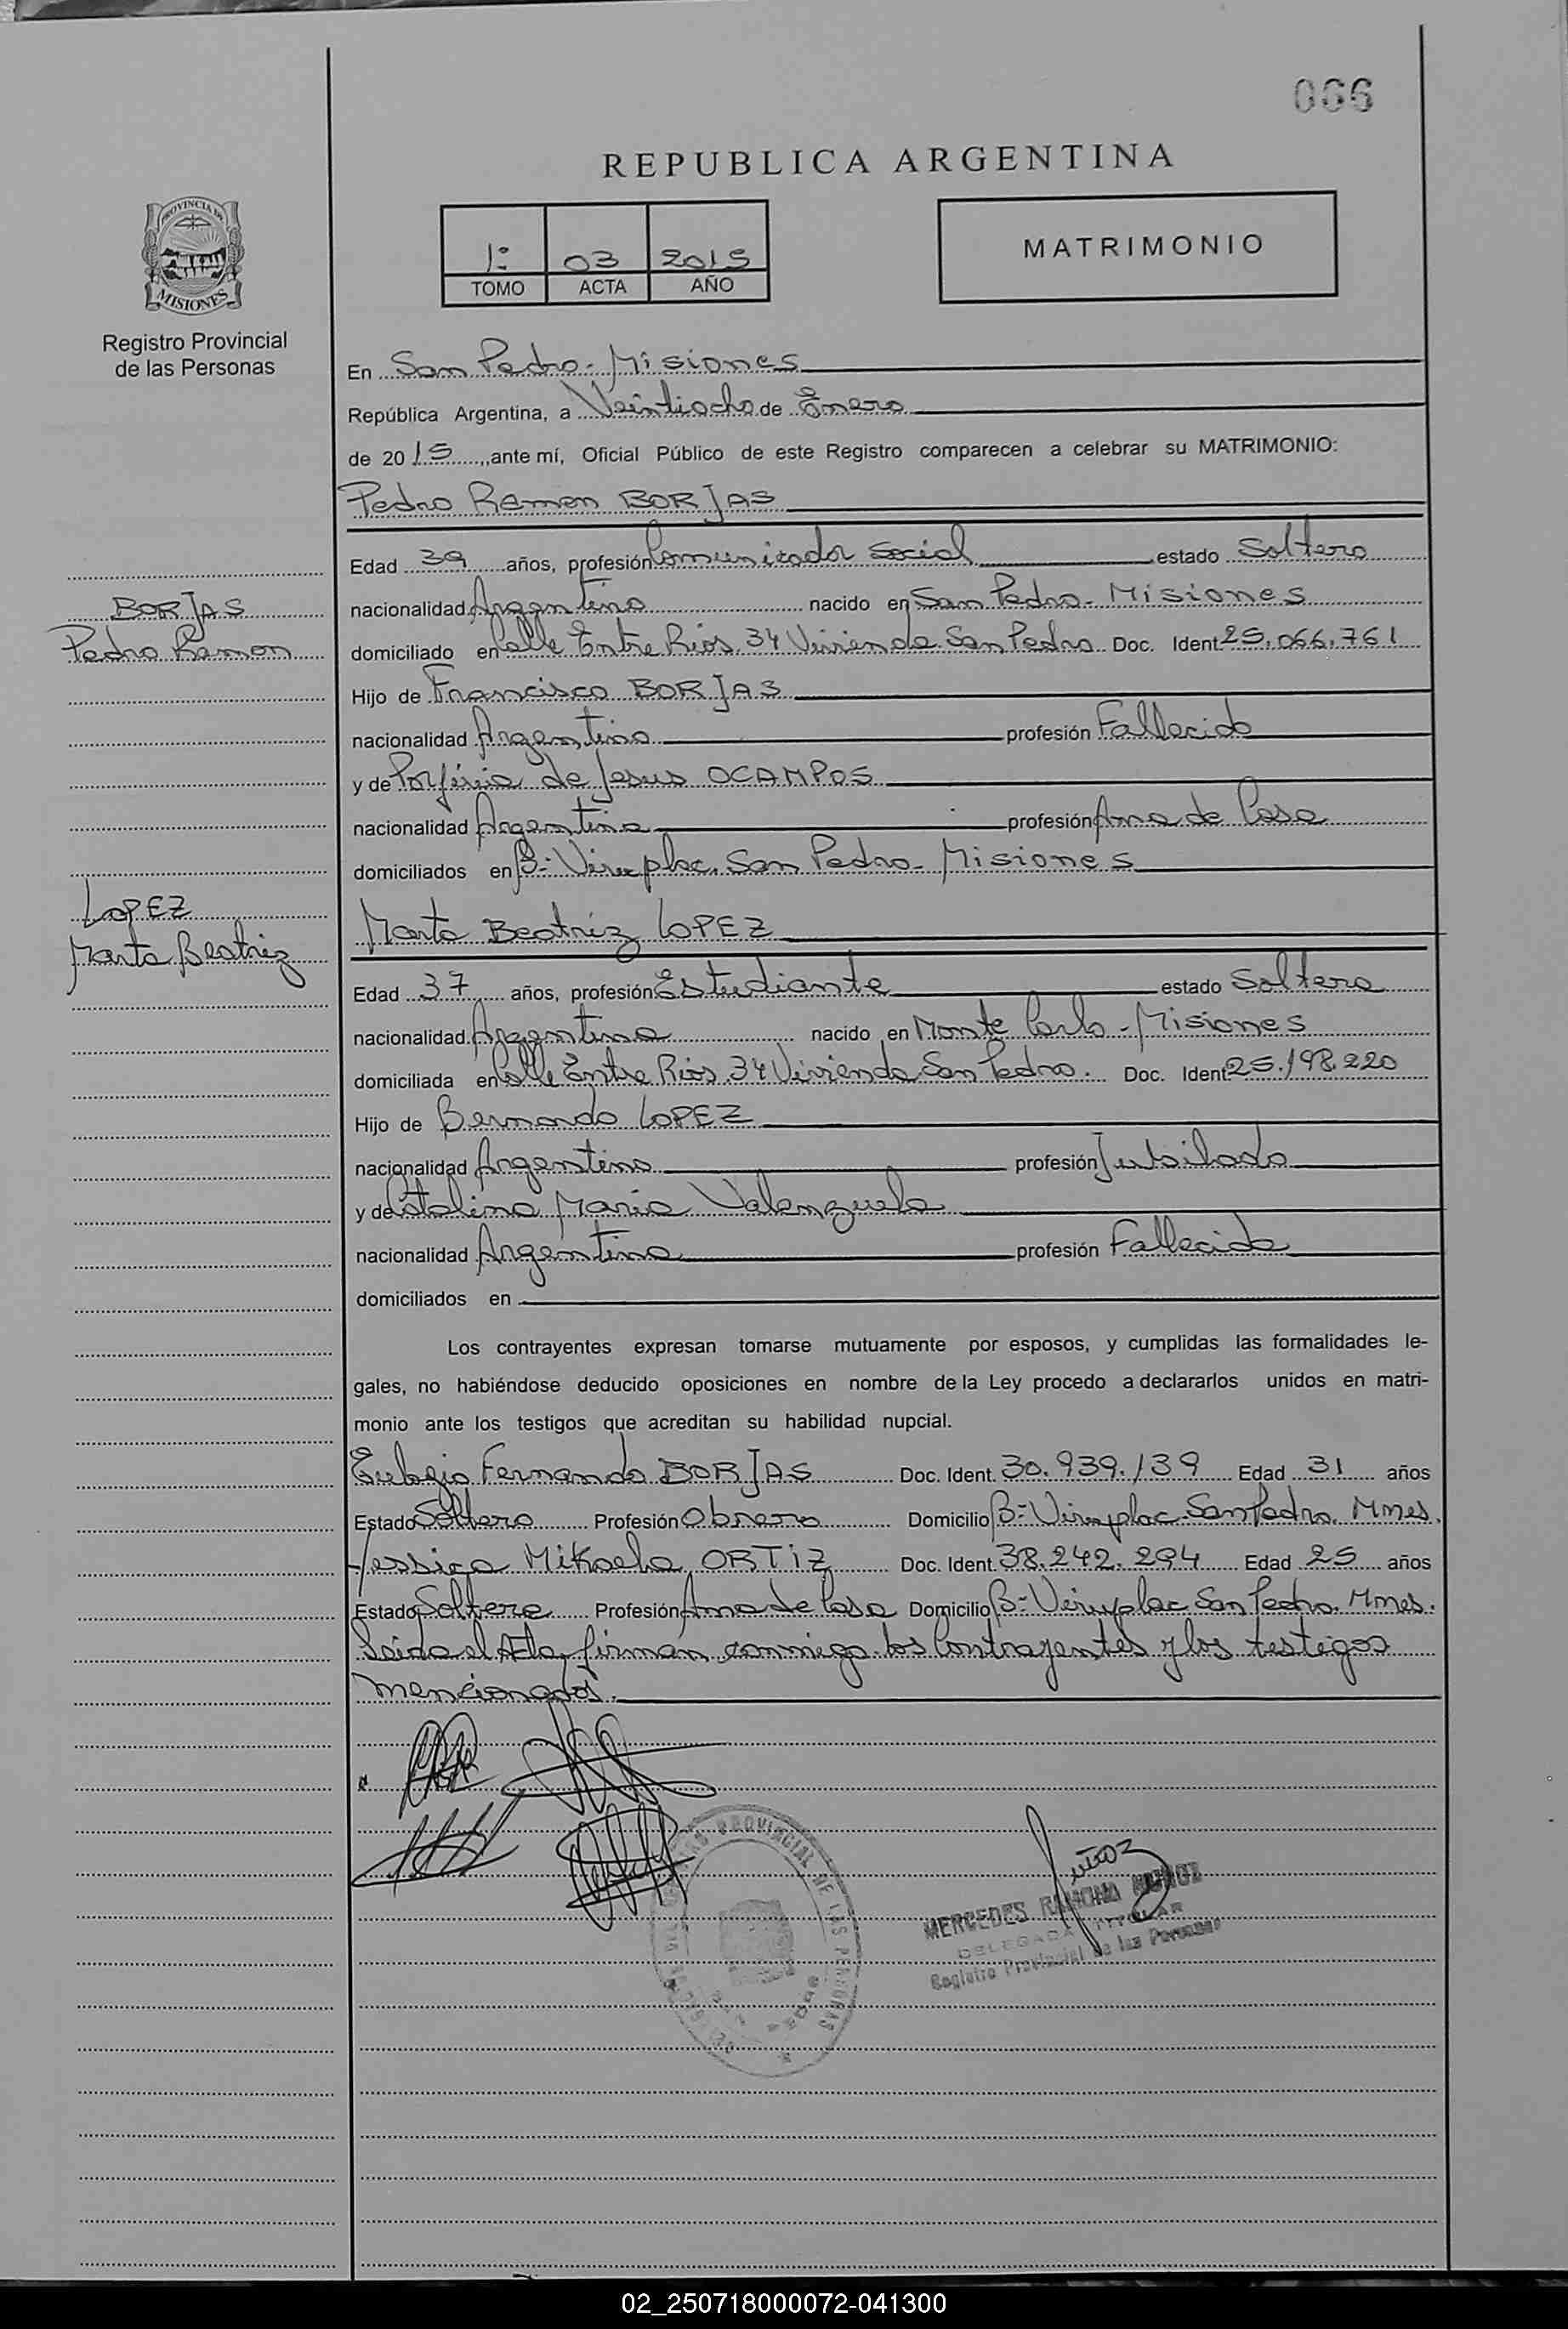 066
REPUBLICA ARGENTINA
PROVINCIA DE
MISIONES
Registro Provincial
de las Personas
1: 03 2015
TOMO ACTA AÑO
MATRIMONIO
En San Pedro - Misiones
República Argentina, a Veintiocho de Enero
de 2015, ante mí, Oficial Público de este Registro comparecen a celebrar su MATRIMONIO:
Pedro Ramon BORJAS
Edad 39 años, profesión Comunicador Social estado Soltero
BORJAS
nacionalidad Argentina nacido en San Pedro - Misiones
Pedro Ramon
domiciliado en Calle Entre Rios 34 Vivienda San Pedro Doc. Ident. 25.066.761
Hijo de Francisco BORJAS
nacionalidad Argentino profesión Fallecido
y de Porfiria de Jesus OCAMPOS
nacionalidad Argentina profesión Ama de Casa
domiciliados en B- San Pedro - Misiones
LOPEZ
Marta Beatriz
Marta Beatriz LOPEZ
Edad 37 años, profesión Estudiante estado Soltera
nacionalidad Argentina nacido en Monte Carlo - Misiones
domiciliada en Calle Entre Rios 34 Vivienda San Pedro. Doc. Ident. 25.198.220
Hijo de Bernardo LOPEZ
nacionalidad Argentino profesión Jubilado
y de Catalina Maria Valenzuela
nacionalidad Argentina profesión Fallecida
domiciliados en
Los contrayentes expresan tomarse mutuamente por esposos, y cumplidas las formalidades le-
gales, no habiéndose deducido oposiciones en nombre de la Ley procedo a declararlos unidos en matri-
monio ante los testigos que acreditan su habilidad nupcial.
Eulogio Fernando BORJAS Doc. Ident. 30.939.139 Edad 31 años
Estado Soltero Profesión Obrero Domicilio B- San Pedro. Mnes.
Yessica Mikaela ORTIZ Doc. Ident. 38.242.294 Edad 25 años
Estado Soltera Profesión Ama de Casa Domicilio B- San Pedro. Mnes.
Leida el Acta, firman conmigo los Contrayentes y los testigos
mencionados.
PROVINCIAL DE LAS PERSONAS
Muñoz
MERCEDES RAMONA MUÑOZ
DELEGADA TITULAR
Registro Provincial de las Personas
02_250718000072-041300